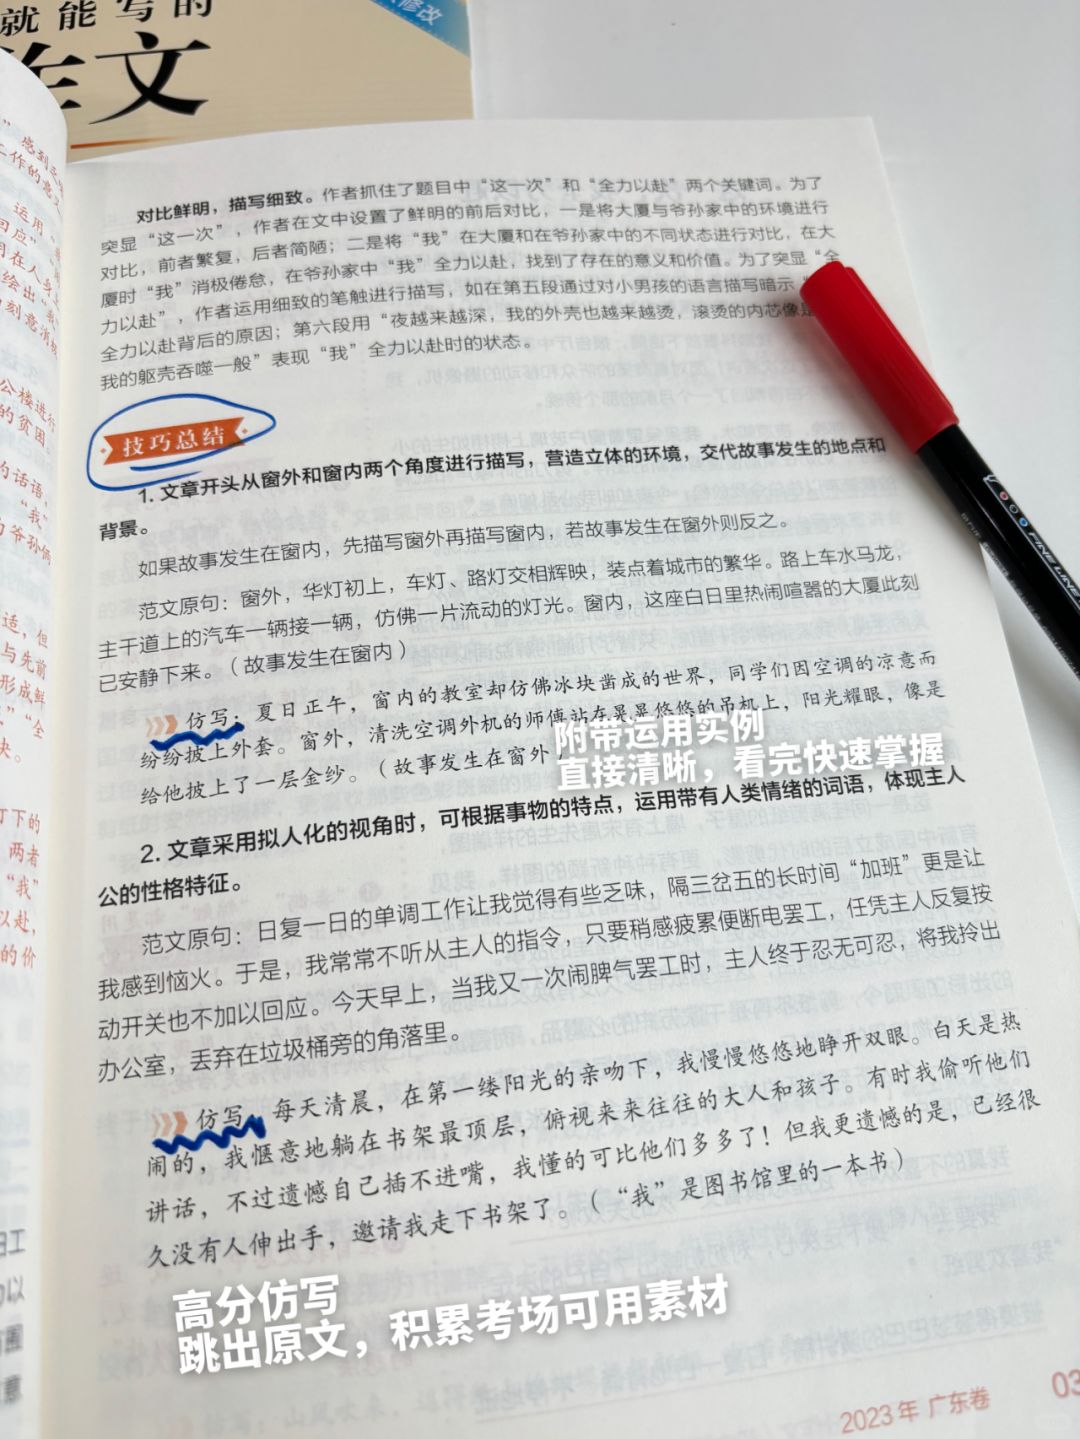 就能写的
作文
修改
对比鲜明，描写细致。作者抓住了题目中“这一次”和“全力以赴”两个关键词。为了
突显“这一次”，作者在文中设置了鲜明的前后对比，一是将大厦与爷孙家中的环境进行
对比，前者繁复，后者简陋；二是将“我”在大厦和在爷孙家中的不同状态进行对比，在大
厦时“我”消极倦怠，在爷孙家中“我”全力以赴，找到了存在的意义和价值。为了突显“全
力以赴”，作者运用细致的笔触进行描写，如在第五段通过对小男孩的语言描写暗示
全力以赴背后的原因；第六段用“夜越来越深，我的外壳也越来越烫，滚烫的内芯像是
我的躯壳吞噬一般”表现“我”全力以赴时的状态。
技巧总结
1. 文章开头从窗外和窗内两个角度进行描写，营造立体的环境，交代故事发生的地点和
背景。
如果故事发生在窗内，先描写窗外再描写窗内，若故事发生在窗外则反之。
范文原句：窗外，华灯初上，车灯、路灯交相辉映，装点着城市的繁华。路上车水马龙，
主干道上的汽车一辆接一辆，仿佛一片流动的灯光。窗内，这座白日里热闹喧嚣的大厦此刻
已安静下来。（故事发生在窗内）
仿写：夏日正午，窗内的教室却仿佛冰块凿成的世界，同学们因空调的凉意而
纷纷披上外套。窗外，清洗空调外机的师傅站在晃晃悠悠的吊机上，阳光耀眼，像是
给他披上了一层金纱。（故事发生在窗外
附带运用实例
直接清晰，看完快速掌握
2. 文章采用拟人化的视角时，可根据事物的特点，运用带有人类情绪的词语，体现主人
公的性格特征。
范文原句：日复一日的单调工作让我觉得有些乏味，隔三岔五的长时间“加班”更是让
我感到恼火。于是，我常常不听从主人的指令，只要稍感疲累便断电罢工，任凭主人反复按
动开关也不加以回应。今天早上，当我又一次闹脾气罢工时，主人终于忍无可忍，将我拎出
办公室，丢弃在垃圾桶旁的角落里。
仿写：每天清晨，在第一缕阳光的亲吻下，我慢慢悠悠地睁开双眼。白天是热
闹的，我惬意地躺在书架最顶层，俯视来来往往的大人和孩子。有时我偷听他们
讲话，不过遗憾自己插不进嘴，我懂的可比他们多多了！但我更遗憾的是，已经很
久没有人伸出手，邀请我走下书架了。（“我”是图书馆里的一本书）
高分仿写
跳出原文，积累考场可用素材
2023年 广东卷
FINE LINE